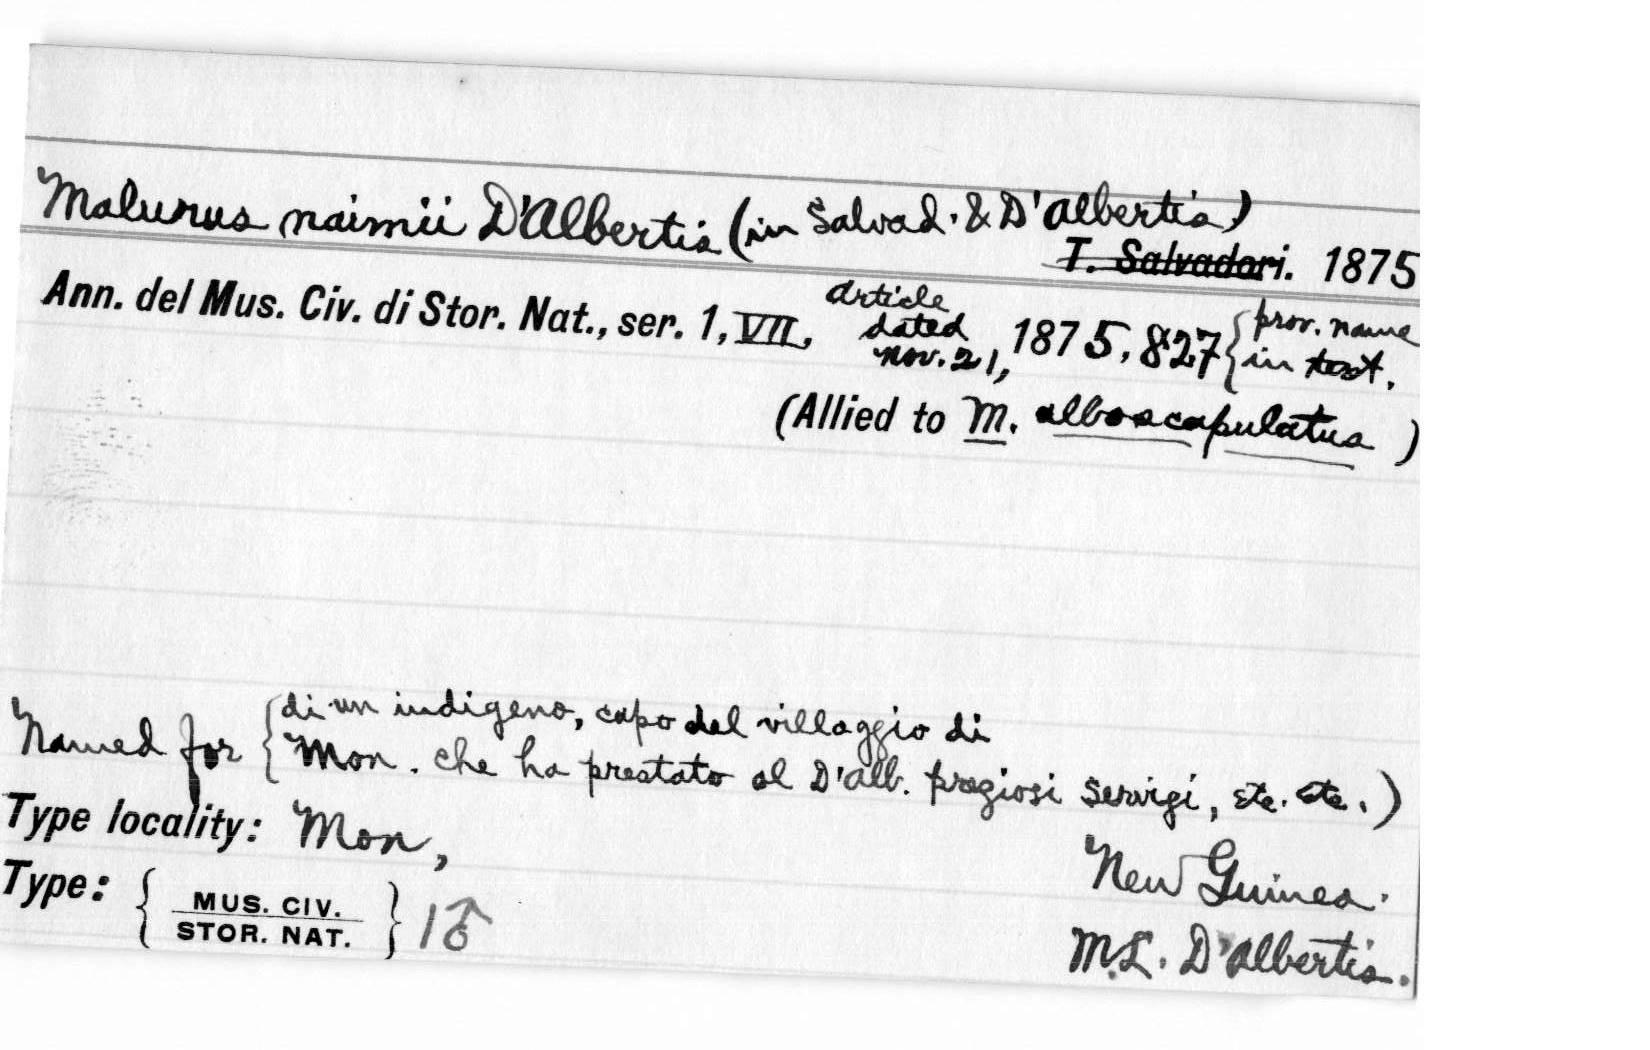 Malurus naimii D'Albertis (in Salvad. & D'Albertis)
T. Salvadori. 1875
Ann. del Mus. Civ. di Stor. Nat., ser. 1, VII, article dated Nov. 21, 1875, 827 { prov. name in text.
(Allied to M. alboscapulatus )
Named for { di un indigeno, capo del villaggio di
Mon. che ha prestato al D'Alb. pregiosi servigi, etc. etc.)
Type locality: Mon,
New Guinea.
Type: { MUS. CIV. STOR. NAT. } 1♂
M.L. D'Albertis.